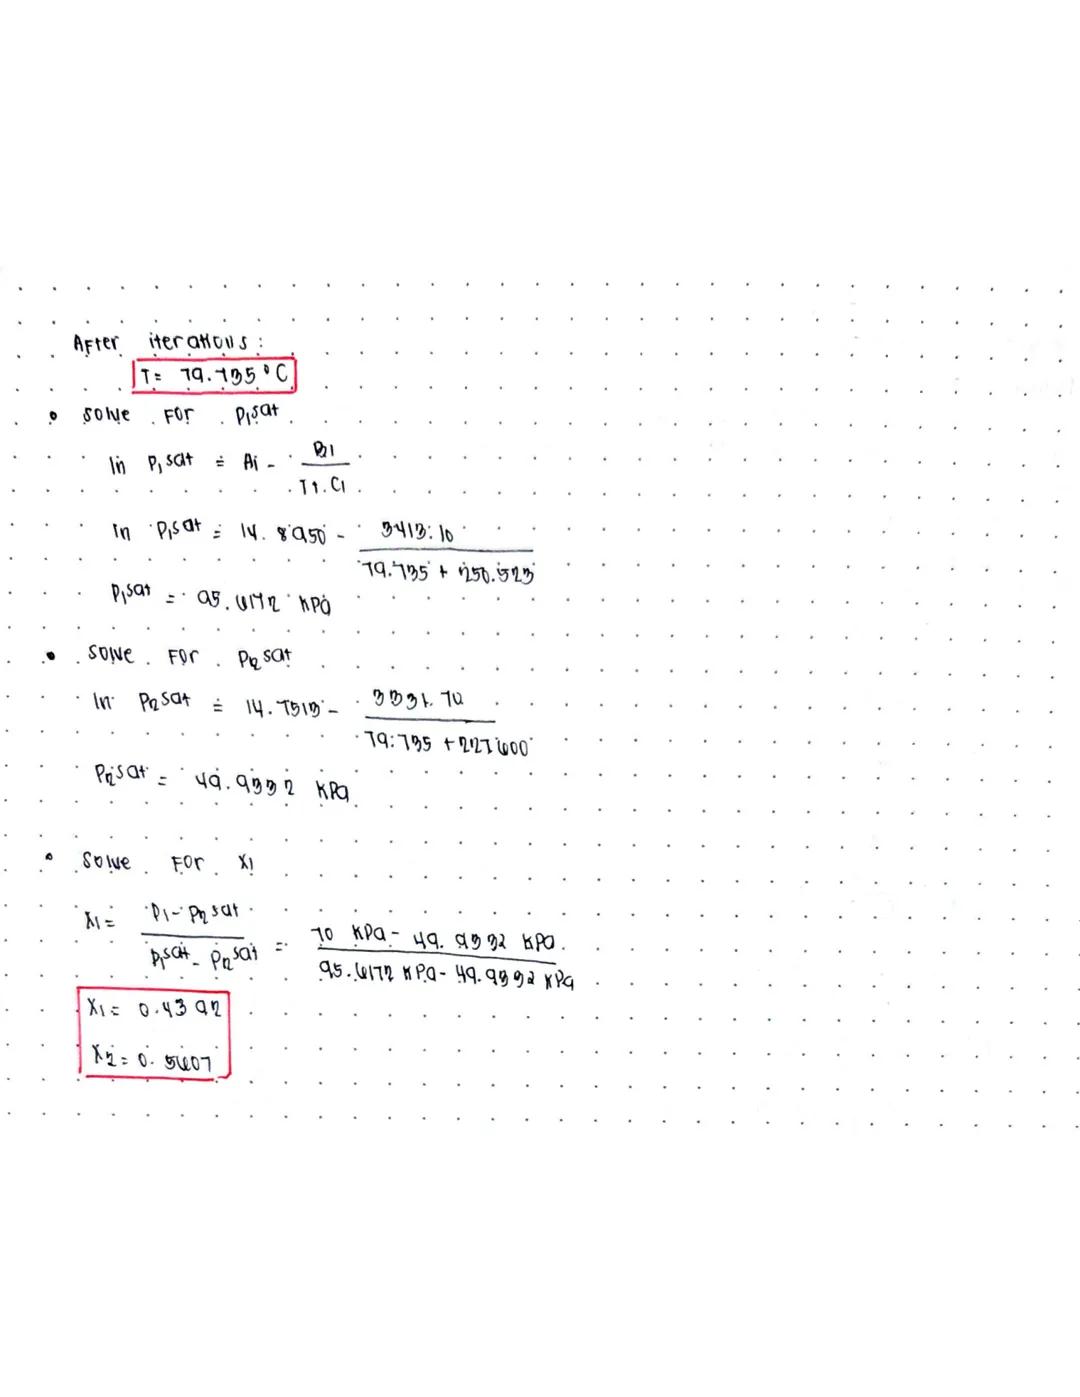 After iterations:
T = 79.735 °C
• Solve For P₁sat
ln P₁sat = Ai - B1 / T + C1
ln P₁sat = 14.8950 - 3413.10 / 79.735 + 250.523
P₁sat = 95.6172 kPa
• Solve For P₂sat
ln P₂sat = 14.7513 - 3331.70 / 79.735 + 227.600
P₂sat = 49.9332 kPa
• Solve For X1
X1 = P1 - P₂sat / P₁sat - P₂sat = 70 kPa - 49.9332 kPa / 95.6172 kPa - 49.9332 kPa
X1 = 0.4392
X2 = 0.5607